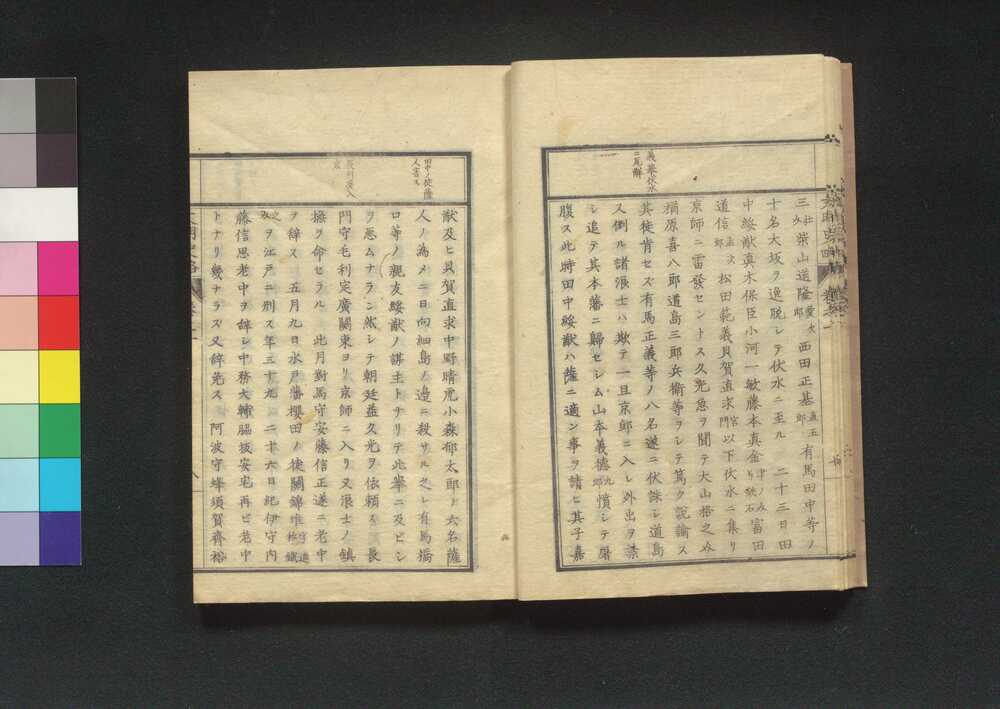 義挙伏水
ニ瓦解
三 柴山道隆 愛次郎 西田正基 直五郎 有馬田中等ノ
十名大坂ヲ逸脱シテ伏水ニ至ル 二十三日田
中綏猷真木保臣小河一敏藤本真金 富田
道信 孟次郎 松田範義貝賀直求 以下伏水ニ集リ
京師ニ雷發セントス久光急ヲ聞テ大山格之助
楢原喜八郎道島三郎兵衛等ヲシテ篤ク説諭ス
其徒肯セス有馬正義等ノ八名遂ニ伏誅シ道島
ス倒ル諸浪士ハ欺テ一旦京邸ニ入レ外出ヲ禁
シ追テ其本藩ニ歸セシム山本義德 憤シテ屠
腹ス此時田中綏猷ハ薩ニ適ン事ヲ請ヒ其子嘉
田中ノ徒薩
人害ス
猷及ヒ貝賀直求中野晴虎小森郁太郎ト六名薩
人ノ為メニ日向細島ノ邉ニ殺サル之レ有馬橋
口等ノ親友綏猷ノ謀主トナリテ此挙ニ及ヒシ
ヲ悪ムナラン然シテ朝廷益久光ヲ依頼ス 長
門守毛利定廣關東ヨリ京師ニ入リ又浪士ノ鎮
撫ヲ命セラル 此月對馬守安藤信正遂ニ老中
ヲ辞ス 五月九日水戸藩櫻田ノ徒關錦堆
ヲ江戸ニ刑ス年三十九 二十六日紀伊守内
藤信思老中ヲ辞シ中務大輔脇坂安宅再ヒ老中
トナリ幾ナラス又辞免ス 阿波守蜂須賀齊裕